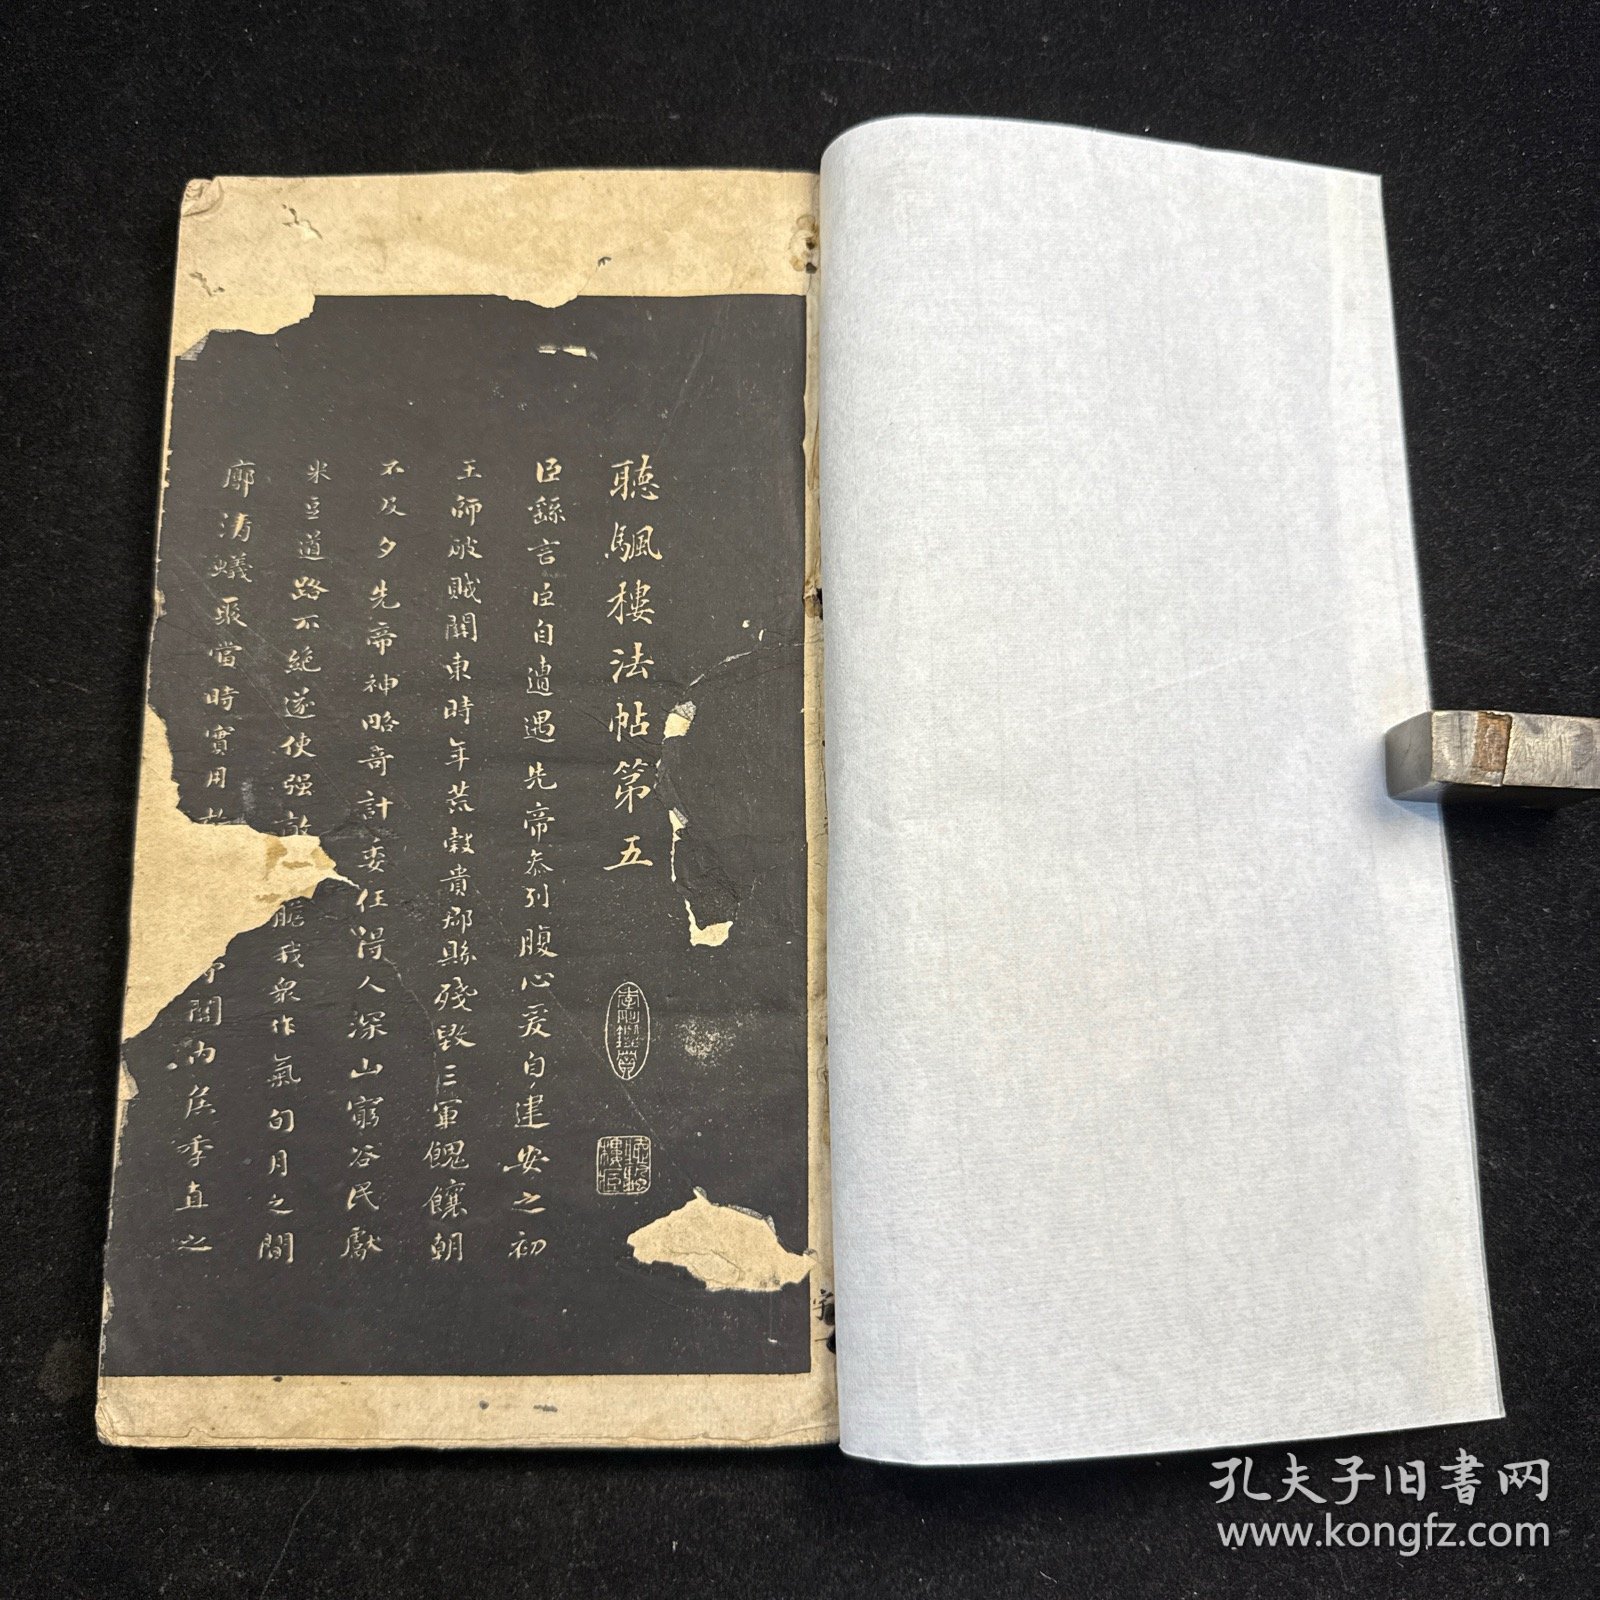 聽颿樓法帖第五
臣繇言臣自遭遇先帝忝列腹心爰自建安之初
王師破賊關東時年荒穀貴郡縣殘毀三軍餽饟朝
不及夕先帝神略奇計委任得人深山窮谷民獻
米豆道路不絕遂使强敵膽我衆作氣旬月之間
廓清蟻聚當時實用故守關內侯季直之
孔夫子旧書网
www.kongfz.com